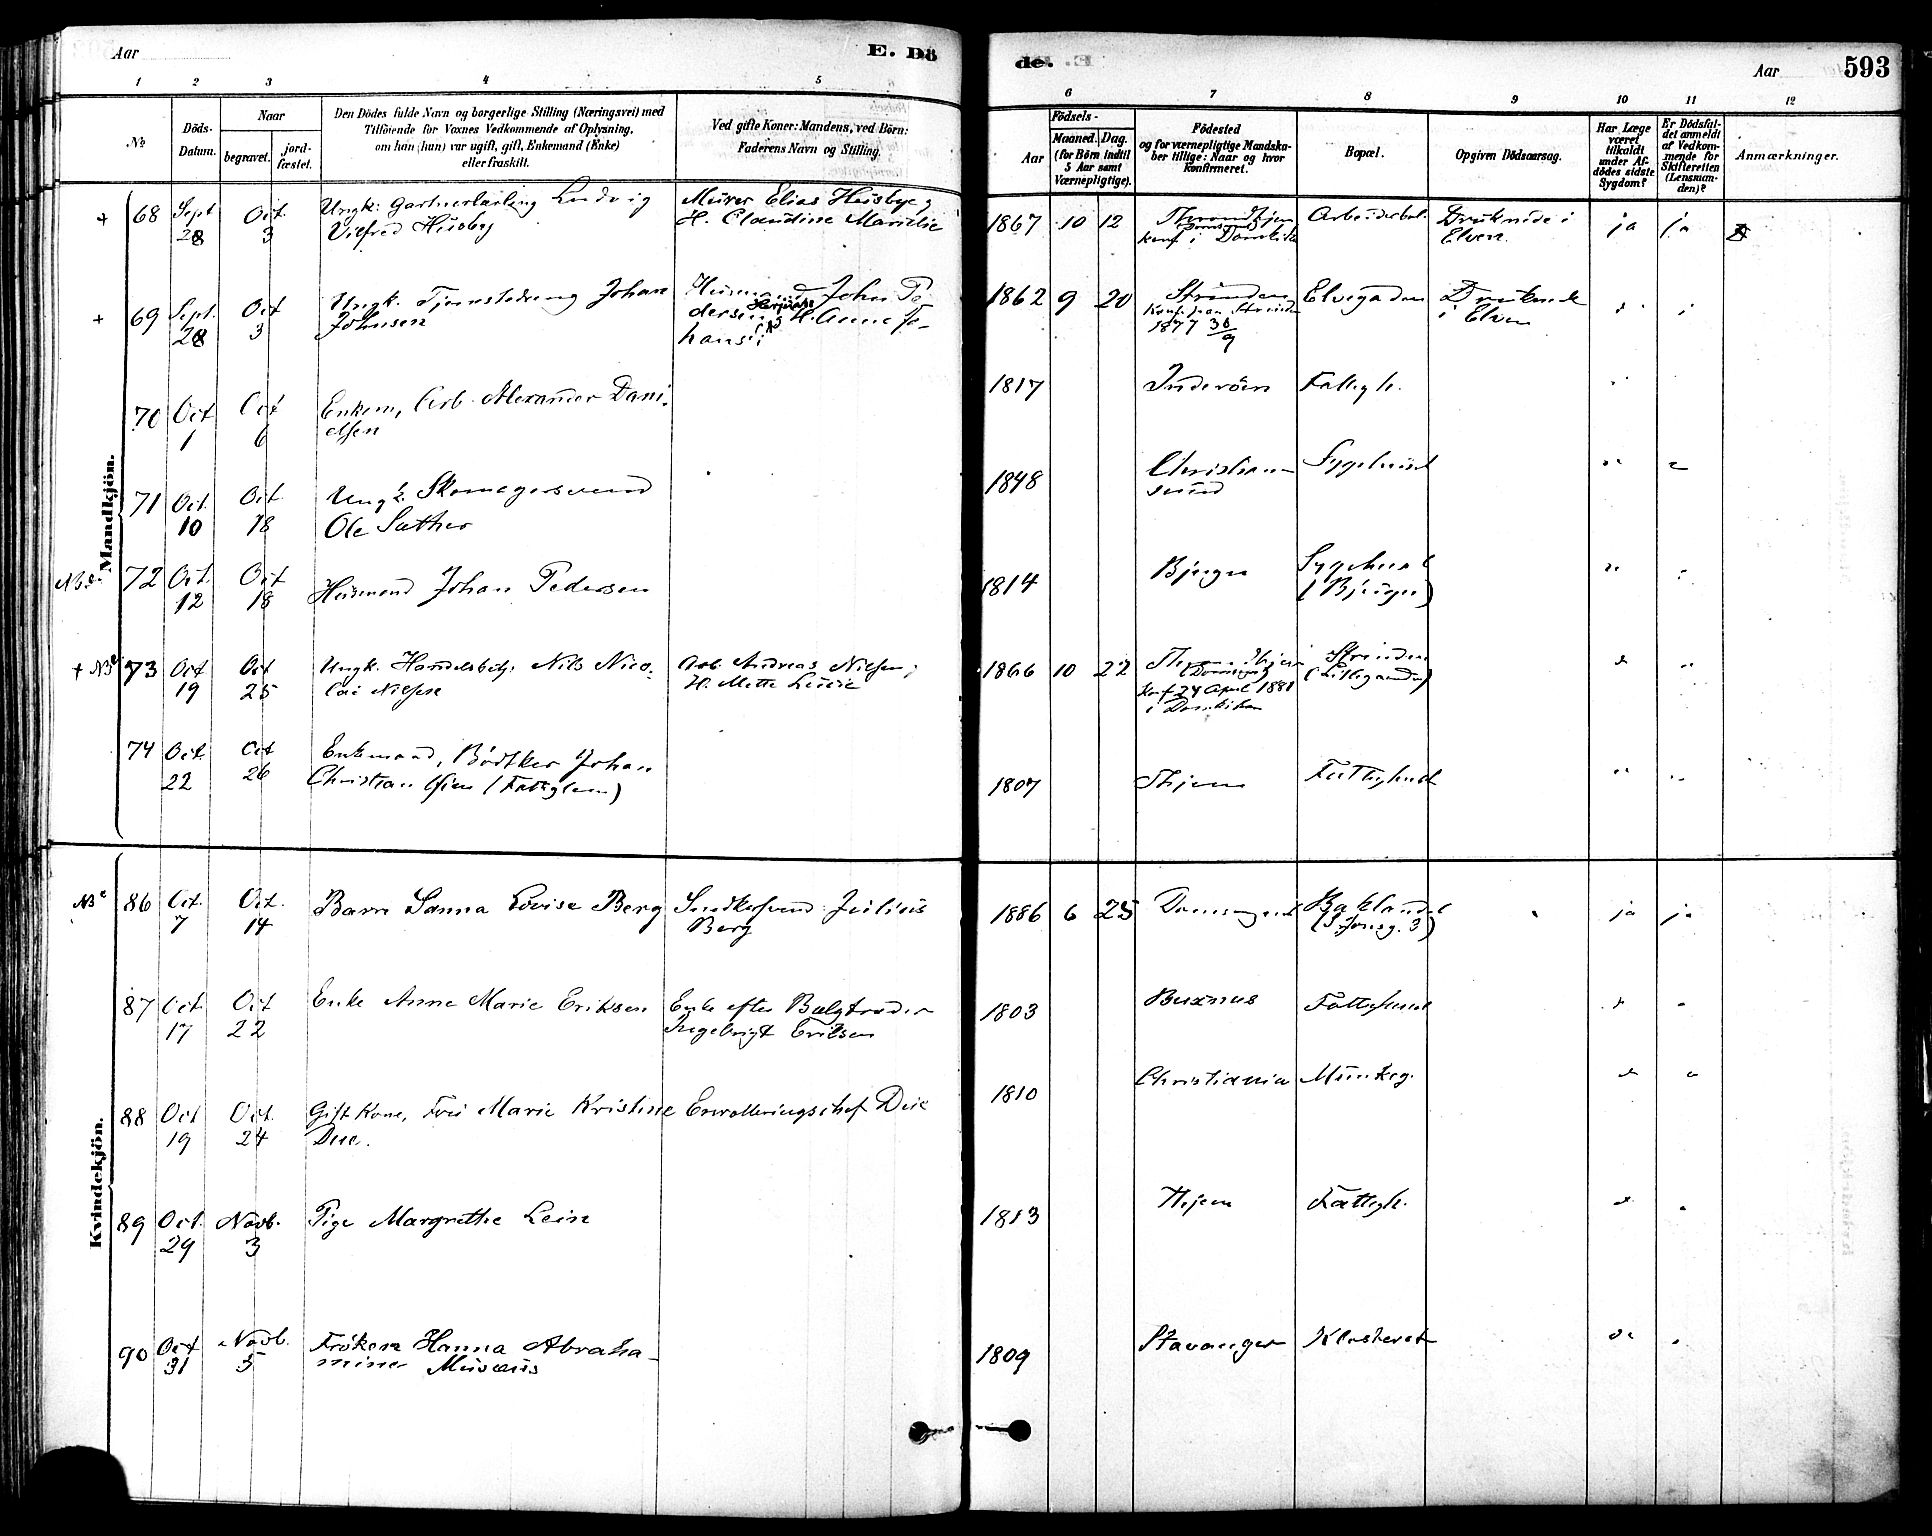 Aar
E. Dö
1 2 3 4 5
No
Döds-
Datum.
Naar
begravet.
jord-
fæstet.
Den Dödes fulde Navn og borgerlige Stilling (Næringsvei) med
Tilföiende for Voxnes Vedkommende af Oplysning,
om han (hun) var ugift, gift, Enkemand (Enke)
eller fraskilt.
Ved gifte Koner: Mandens, ved Börn:
Faderens Navn og Stilling.
Mandkjön.
+ 68 Sept Oct Ungk. Gartnerlærling Ludvig Murer Elias Husby og
28 3 Vilfred Husby H. Claudine
+ 69 Sept. Oct Ungk. Johan Husmand John Pe-
28 3 Johnsen dersen og H. Anne Jo-
hansd.
70 Oct Oct Enkem, Arb. Alexander Dani-
1 6 elsen
71 Oct. Oct Ungk. Skomagersvend
10 18 Ole Sæther
72 Oct. Oct Husmand Johan Pedersen
12 18
+ NB 73 Oct Oct Ungk. Handelsbetj. Nils Nico-
19 25 lai Nielsen
Arb. Andreas Nielsen,
H. Mette
74 Oct. Oct Enkemand, Bödtker Johan
22 26 Christian Öien (Fattiglem)
Kvindekjön.
NB 86 Oct. Oct. Barn Sanna Lovise Berg Snedkersvend Julius
7 14 Berg
87 Oct. Oct Enke Anne Marie Eriksen Enke efter
17 22 Ingebrigt Eriksen
88 Oct Oct. Gift Kone, Fru Marie Kristine Enrolleringschef Due
19 24 Due.
89 Oct. Novb. Pige Margrethe Lein
29 3
90 Oct Novb. Fröken Hanna Abraha-
31 5 mine Musæus
de.
Aar
593
6 7 8 9 10 11 12
Födsels-
Aar
Maaned. Dag.
(for Börn indtil
5 Aar samt
Værnepligtige).
Födested
og for værnepligtige Mandska-
ber tillige: Naar og hvor
konfirmeret.
Bopæl.
Opgiven Dödsaarsag.
Har Læge
været
tilkaldt
under Af-
dödes sidste
Sygdom?
Er Dödsfal-
det anmeldt
af Vedkom-
mende for
Skifteretten
(Lensman-
den)?
Anmærkninger.
1867 10 12 Throndhjem Druknede i ja ja
konf i Domkirken Elven
1862 9 20 Strinden Elvegaden Druknede
Konf. paa Strinden i Elven
1877 30/9
1817 Inderöen Fattigh.
1848 Christian- Sygehuset
sund
1814 Bjugn Sygehuset
(Bjugn)
1866 10 22 Strinden
Konf 24 April 1881
i Domkirken
1807 Thjem Fattighuset
1886 6 25 Domsognet Baklandet ja ja
1803 Buxnes Fattighuset
1810 Christiania Munkeg.
1813 Thjem Fattigh.
1809 Stavanger Klosteret